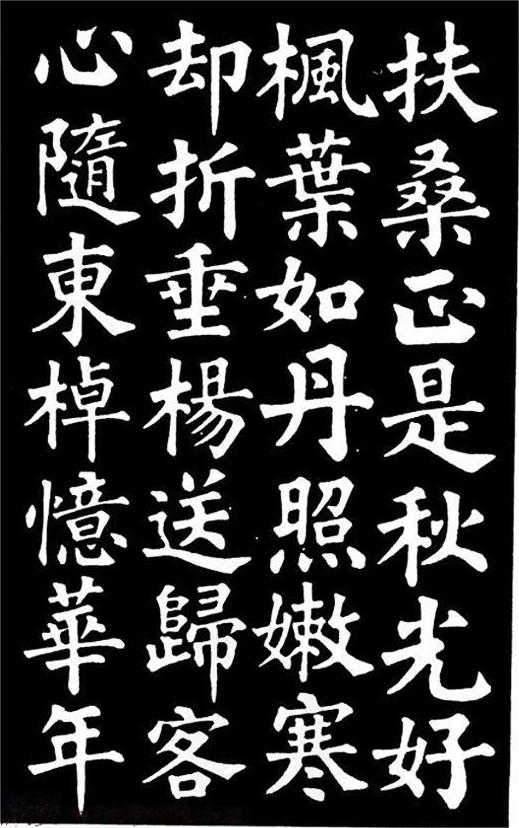 扶桑正是秋光好
楓葉如丹照嫩寒
却折垂楊送歸客
心隨東棹憶華年